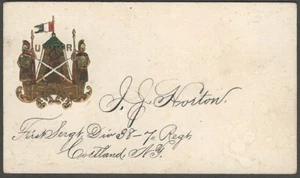 U R
J. J. Horton.
First Sergt Div 38-7. Regt
Cortland N.Y.